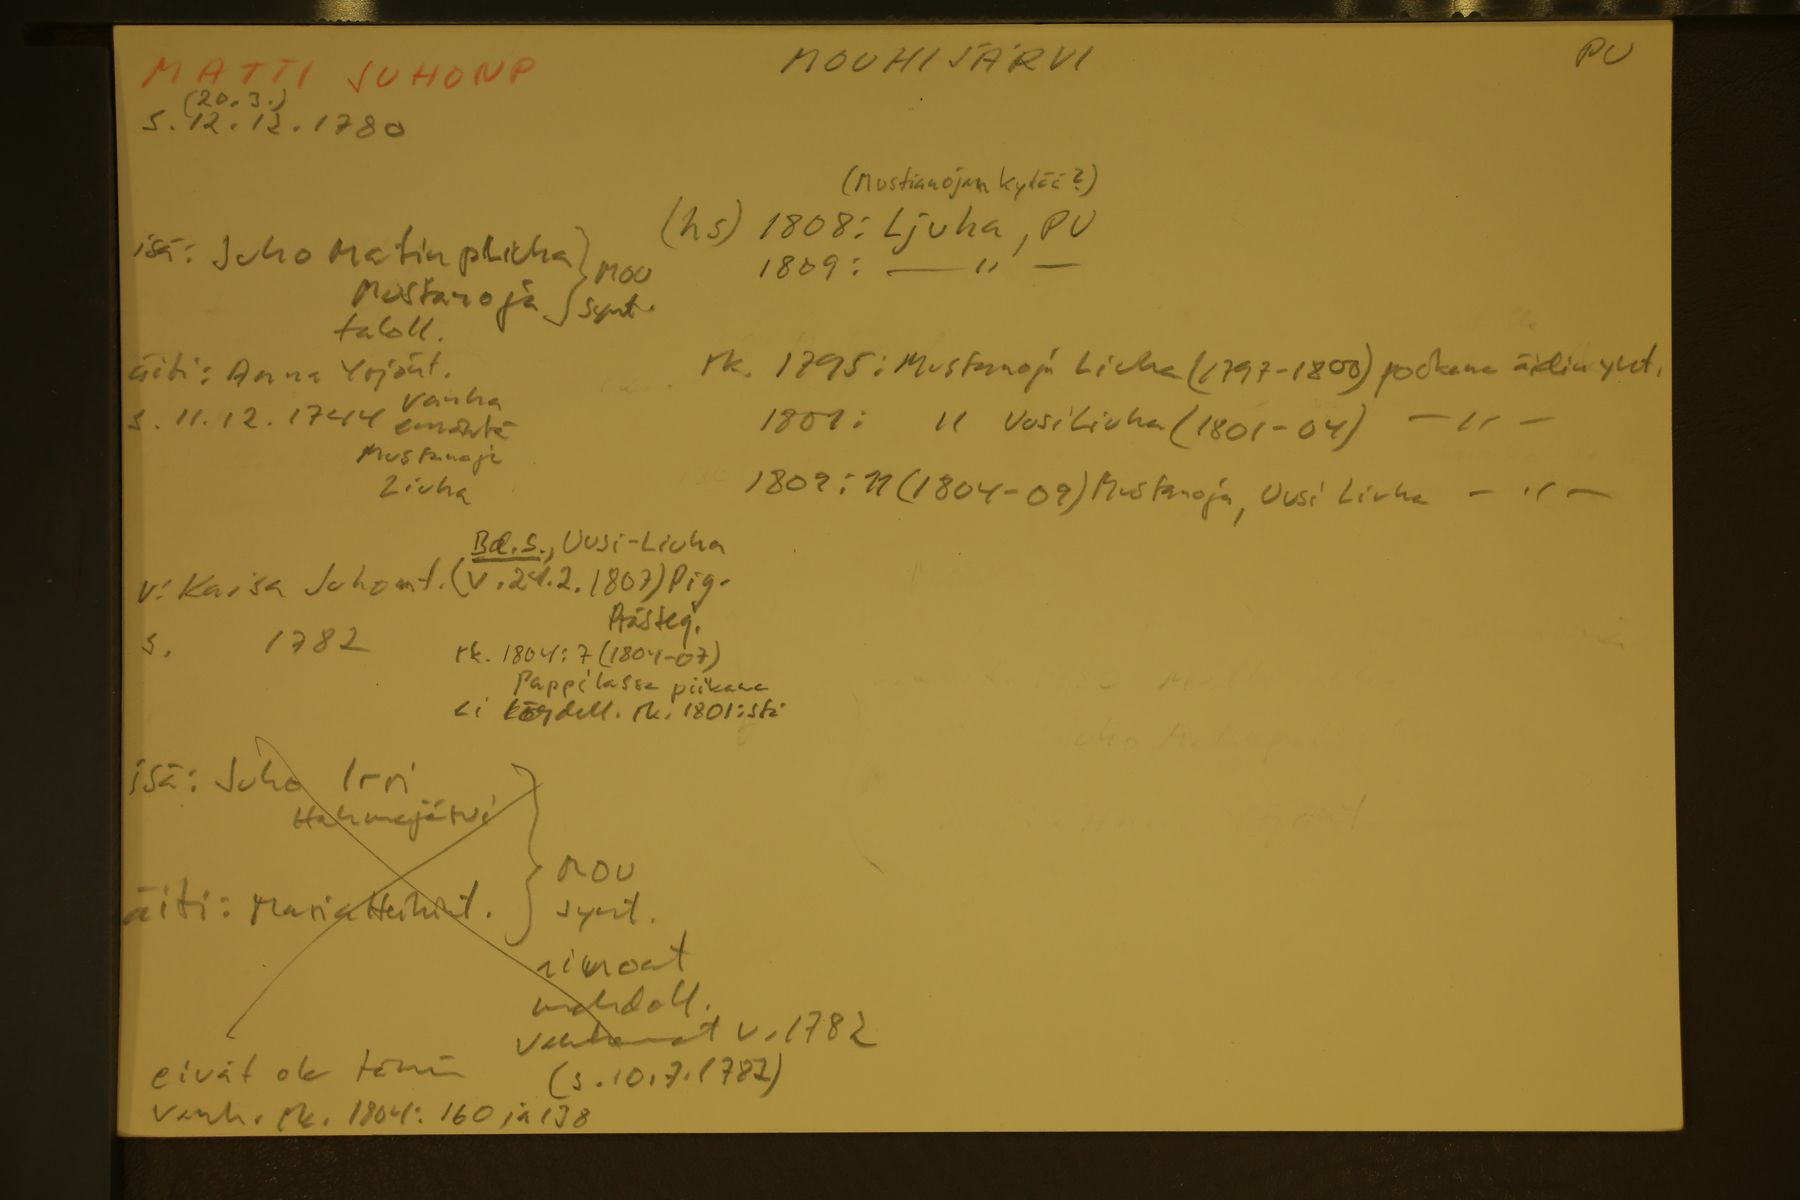 MATTI JUHONP
MOUHIJÄRVI
PU
(20.3.)
s. 12.12.1780
(Mustianojan kylää?)
(hs) 1808: Ljuha, PU
1809: — " —
isä: Juho Matinp Liuha
Mustanoja
taloll.
} MOU
synt.
äiti: Anna Yrjönt.
s. 11.12.1744 vanha
emäntä
Mustanoja
Liuha
rk. 1795: Mustanoja Liuha (1797-1800) poikana äidin yht.
1801: " Uusi Liuha (1801-04) — " —
1809: 11 (1804-09) Mustanoja, Uusi Liuha — " —
Bd.s., Uusi-Liuha
v: Kaisa Juhont. (v. 24.2.1807) Pig.
s. 1782
rk. 1804: 7 (1804-07)
Pappilassa piikana
ei rk. 1801:stä
isä: Juho Irri
Hahmajärvi
äiti: Maria Heikint.
} MOU
synt.
ainoat
mahdoll.
vanhemmat v. 1782
(s. 10.7.1782)
eivät ole tämän
vanh. rk. 1804: 160 ja 138